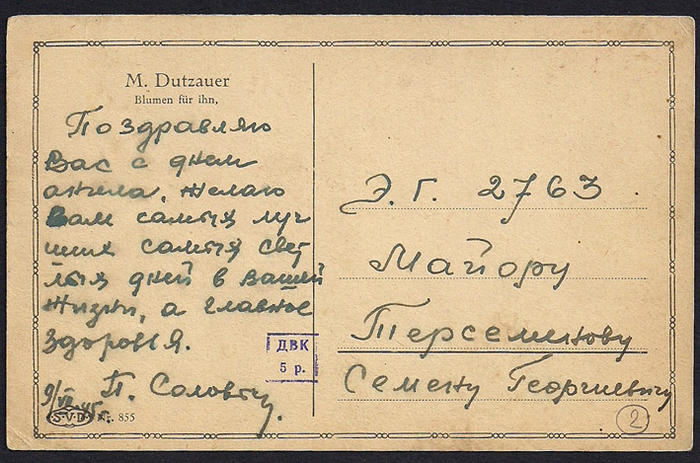 M. Dutzauer
Blumen für ihn,
Поздравляю
Вас с днем
ангела, желаю
Вам самых луч
ших самых свет
лых дней в вашей
жизни, а главное
здоровья.
П.
S·V·D Nr. 855
ДВК
5 р.
Э. Г. 2763
Майору
Терсеминову
Семену Георгиевичу
2